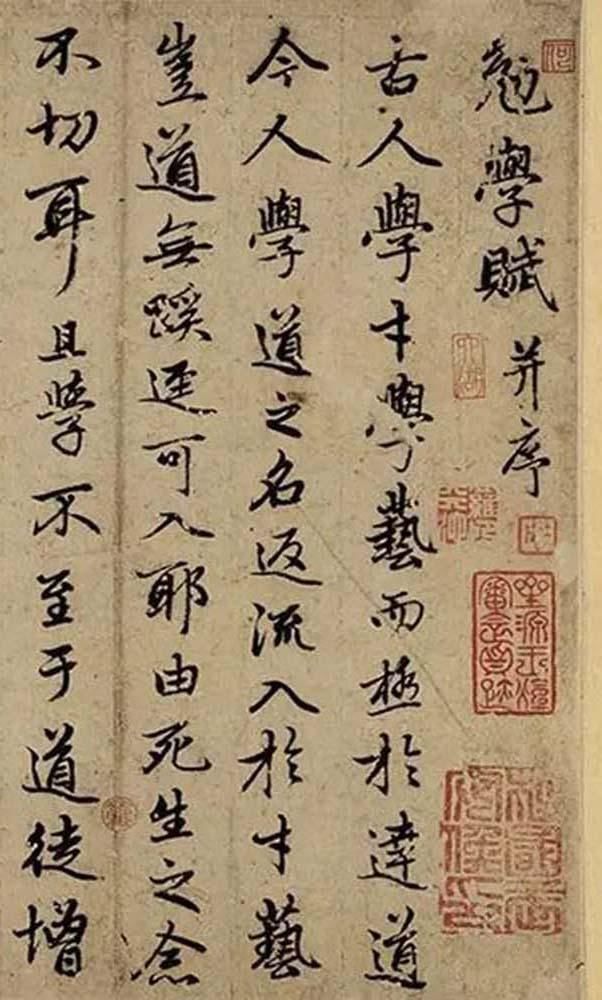 勉學賦并序
古人學才學藝而極於達道
今人學道之名返流入於才藝
豈道無蹊逕可入耶由死生之念
不切耳且學不至于道徒增